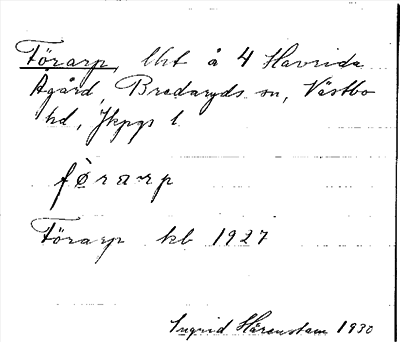 Förarp, lht å 4 Havrida
Ågård, Bredaryds sn, Västbo
hd, Jkpgs l.
fòrarp
Förarp kb 1927
Ingrid Hårenstam 1930